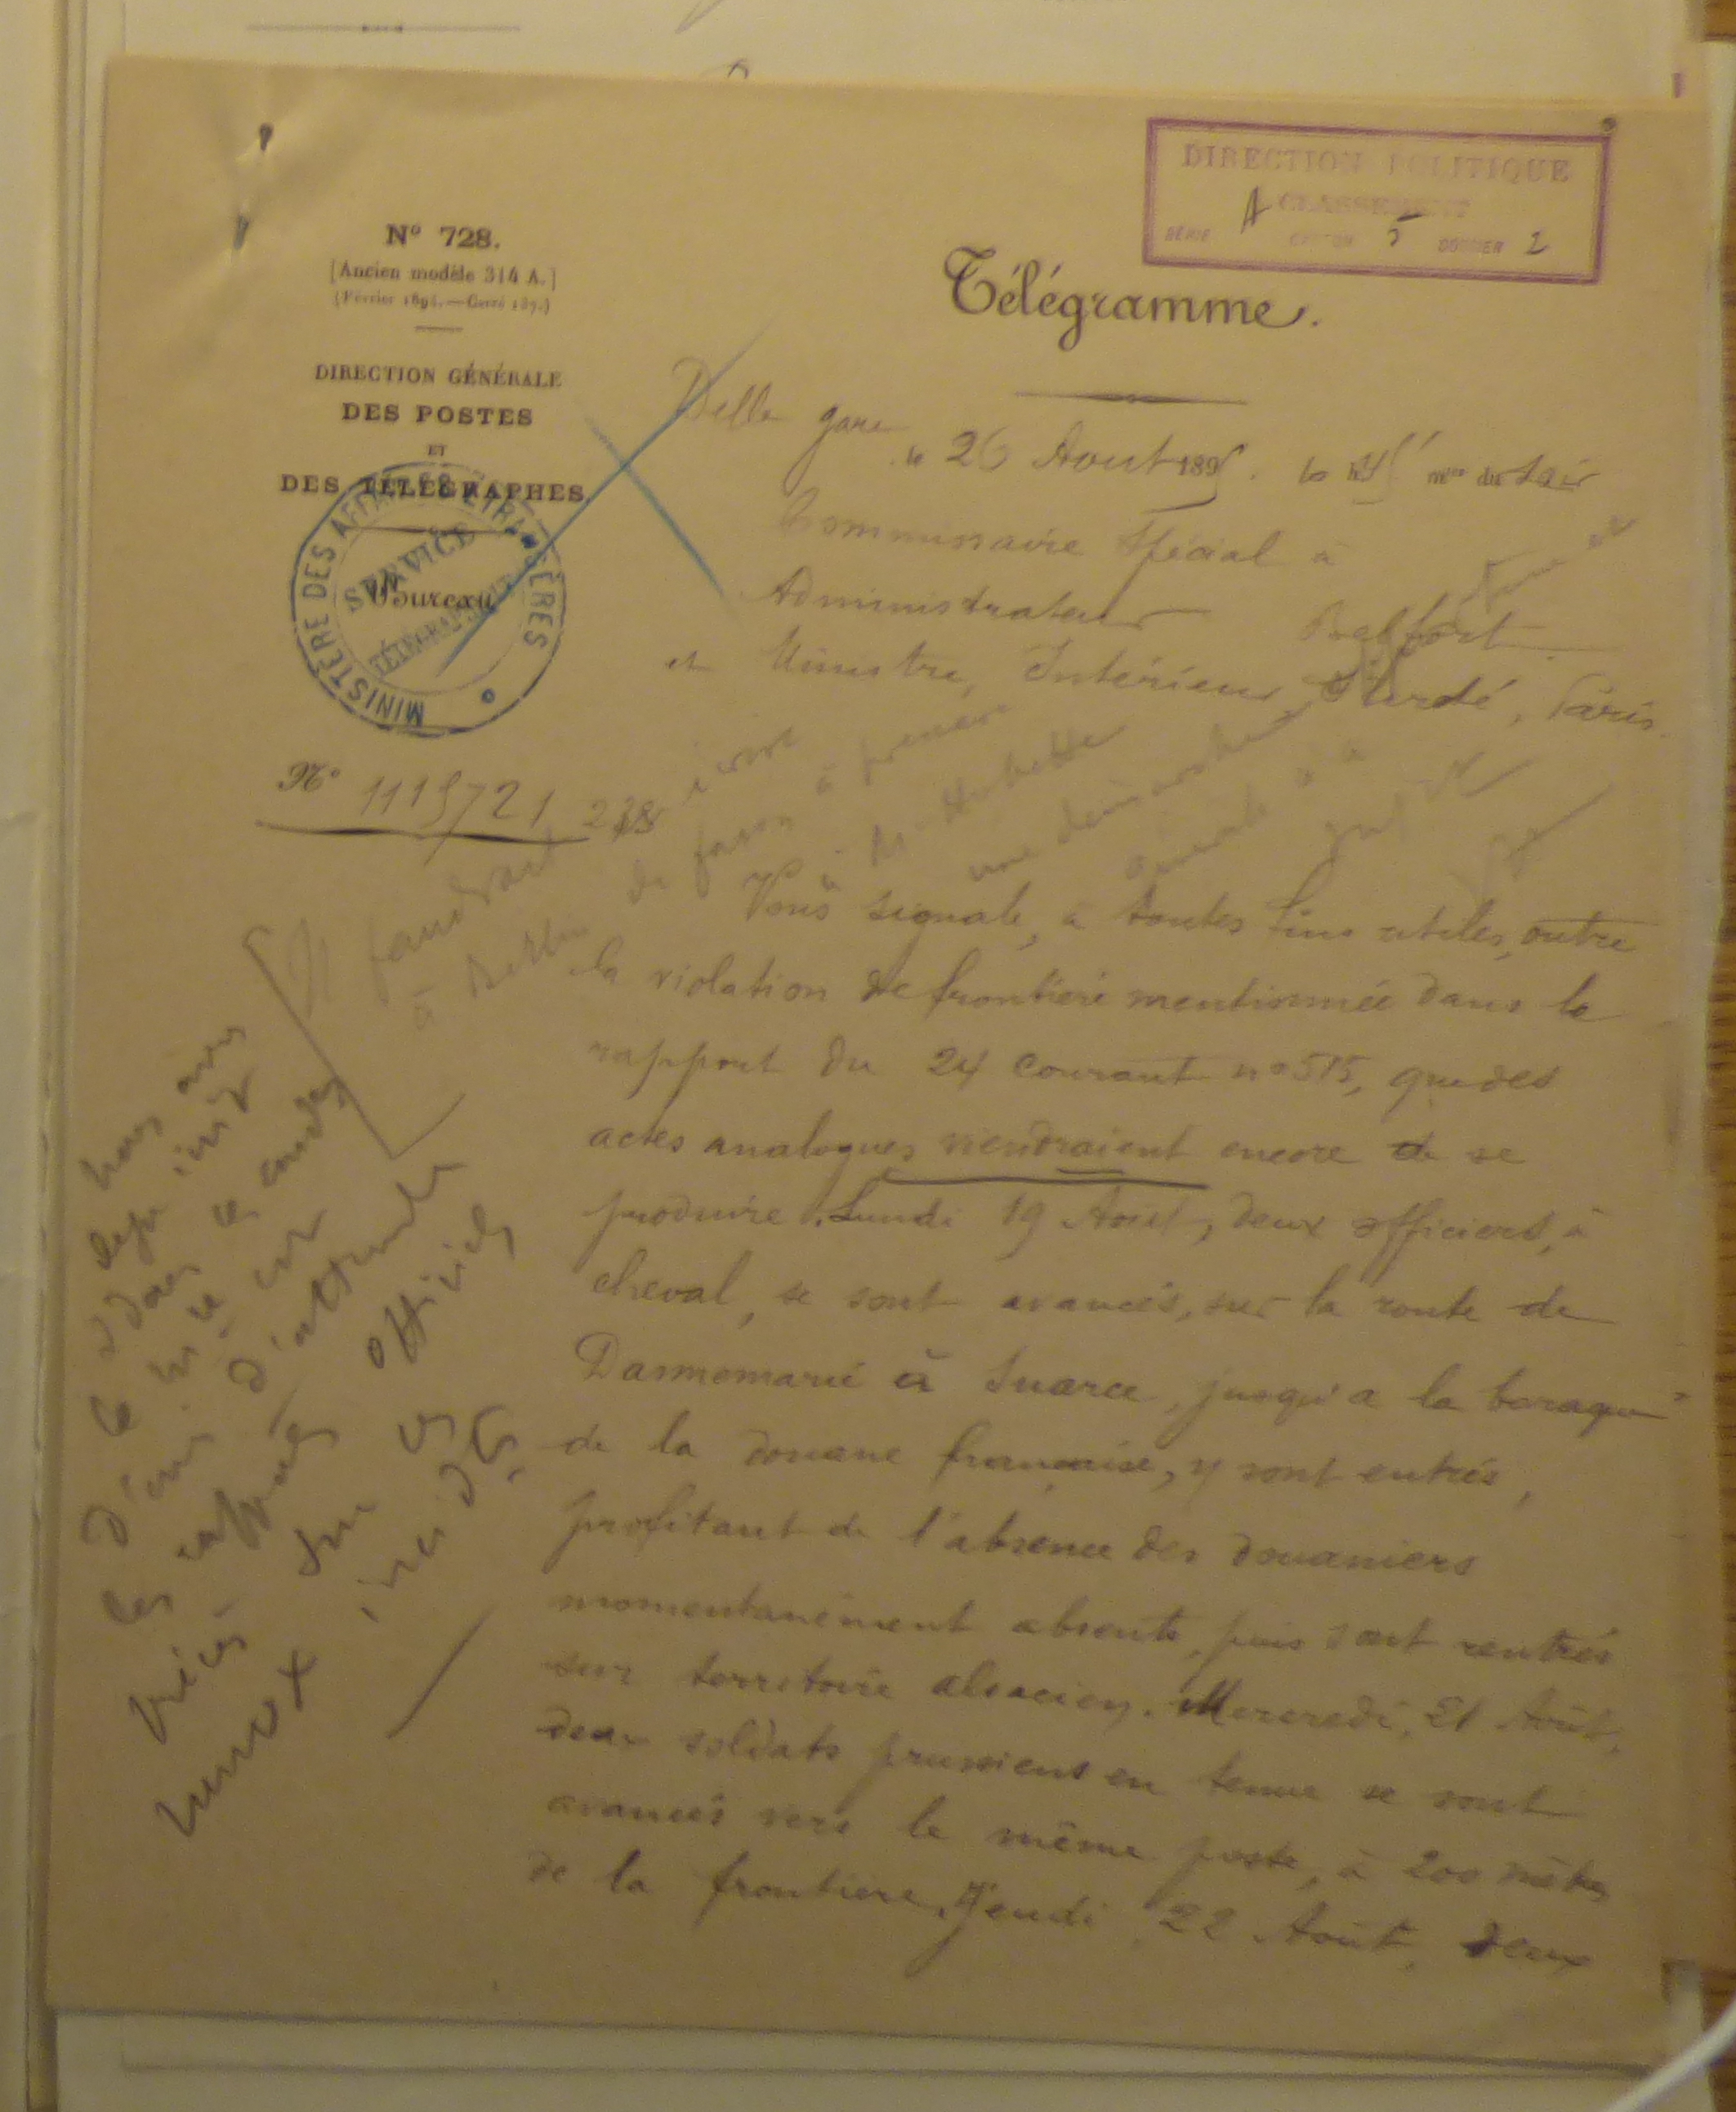 DIRECTION POLITIQUE
CLASSEMENT
SÉRIE A CARTON 5 DOSSIER 2
N° 728.
[Ancien modèle 314 A.]
DIRECTION GÉNÉRALE
DES POSTES
ET
DES TÉLÉGRAPHES
MINISTÈRE DES AFFAIRES ÉTRANGÈRES
SERVICE
TÉLÉGRAPHIQUE
Bureau
N° 1119721
Télégramme.
Delle gare
le 26 Aout 1895. du soir
Commissaire Spécial à
Administrateur Belfort
et Ministre, Intérieur, Sureté, Paris.
Il faudrait écrire
à Berlin de façon à prescrire
à M. Herbette
une démarche
amicale
Vous signale, à toutes fins utiles, outre
la violation de frontière mentionnée dans le
rapport du 24 courant n° 515, que des
actes analogues viendraient encore de se
produire. Lundi 19 Aout, deux officiers, à
cheval, se sont avancés, sur la route de
Dannemarie à Suarce, jusqu'a la baraque
de la douane française, y sont entrés,
profitant de l'absence des douaniers
momentanément absents, puis sont rentrés
sur territoire alsacien. Mercredi, 21 Août,
deux soldats prussiens en tenue se sont
avancés vers le même poste, à 200 mètres
de la frontière. Jeudi 22 Août, deux
nous avons
déjà écrit
dans ce
d'attendre
les rapports officiels
sur ces
nouveaux incidts